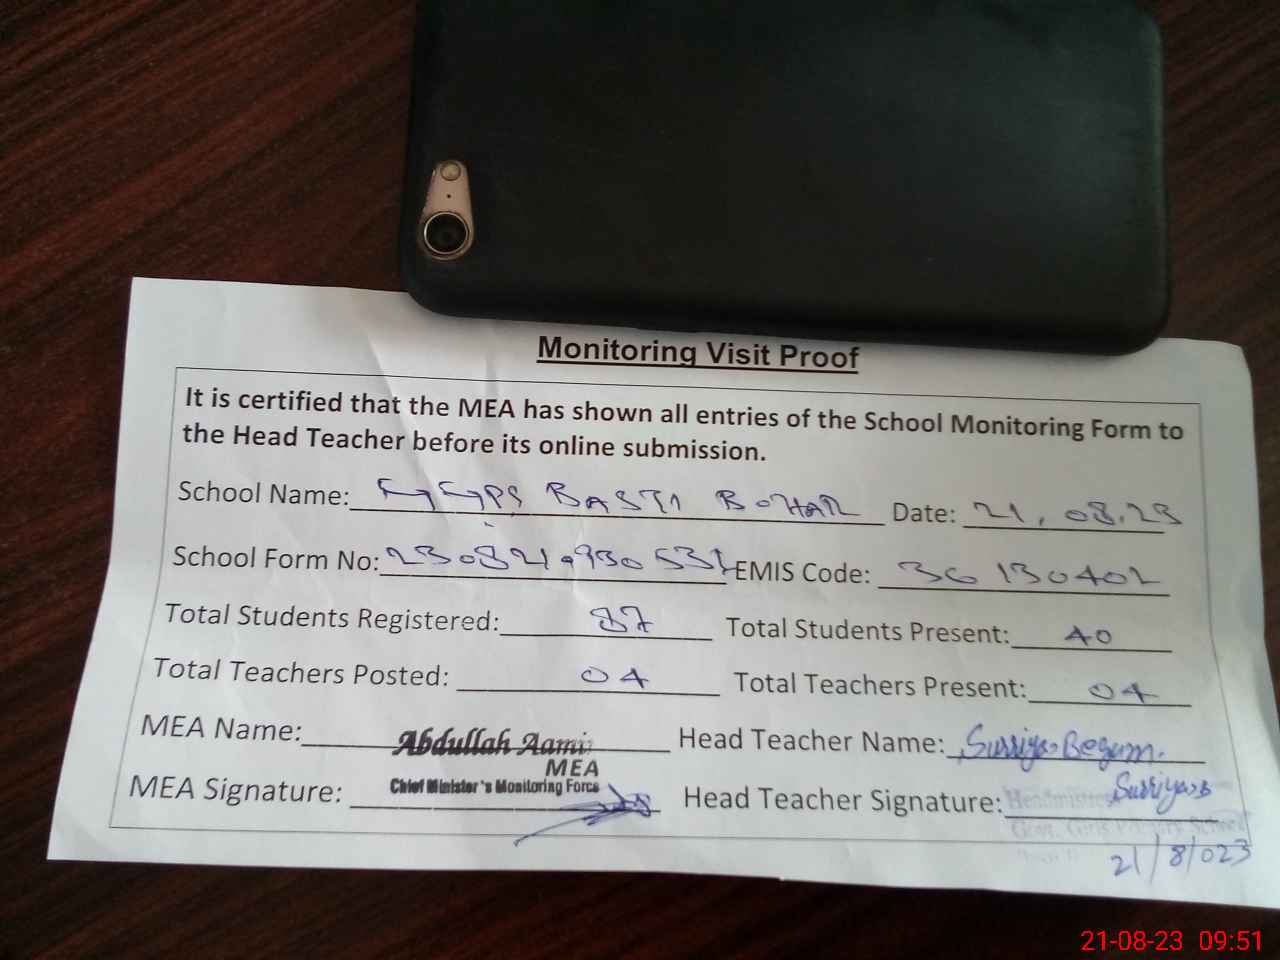 Monitoring Visit Proof
It is certified that the MEA has shown all entries of the School Monitoring Form to
the Head Teacher before its online submission.
School Name: GGPS BASTI BOHAR Date: 21.08.23
School Form No: EMIS Code: 36130402
Total Students Registered: 87 Total Students Present: 40
Total Teachers Posted: 04 Total Teachers Present: 04
MEA Name: Abdullah Aamir Head Teacher Name: Surriya Begum.
MEA
Chief Minister's Monitoring Force
MEA Signature: Head Teacher Signature: Surriya B
Headmistress
Govt. Girls Primary School
21/8/023
21-08-23 09:51